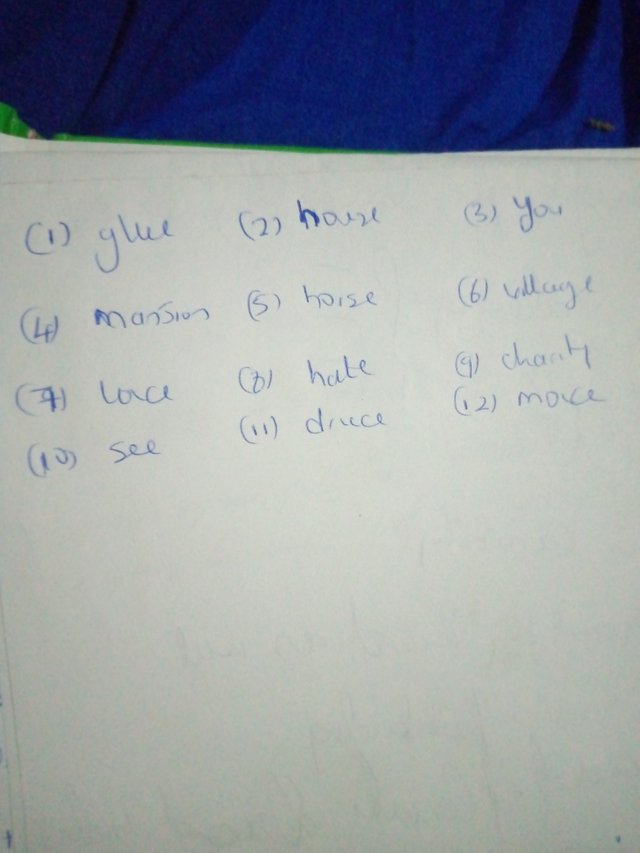 (1) glue (2) house (3) you
(4) mansion (5) horse (6) village
(7) love (8) hate (9) charity
(10) see (11) drive (12) move